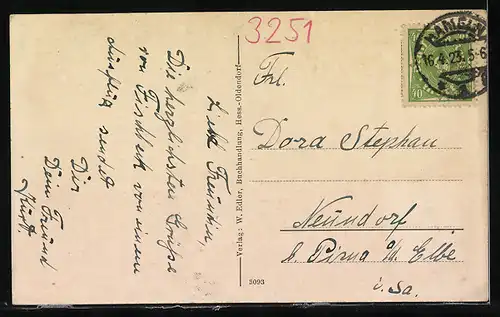 3251
Liebe Freundin,
Die herzlichsten Grüße
von Fischbeck von einem
Ausflug sendet
Dir
Dein Freund
Kurt.
Verlag: W. Edler, Buchhandlung, Hess.-Oldendorf
3093
16.4.23. 5-6
40
Frl.
Dora Stephan
Neundorf
b. Pirna a/d. Elbe
i. Sa.